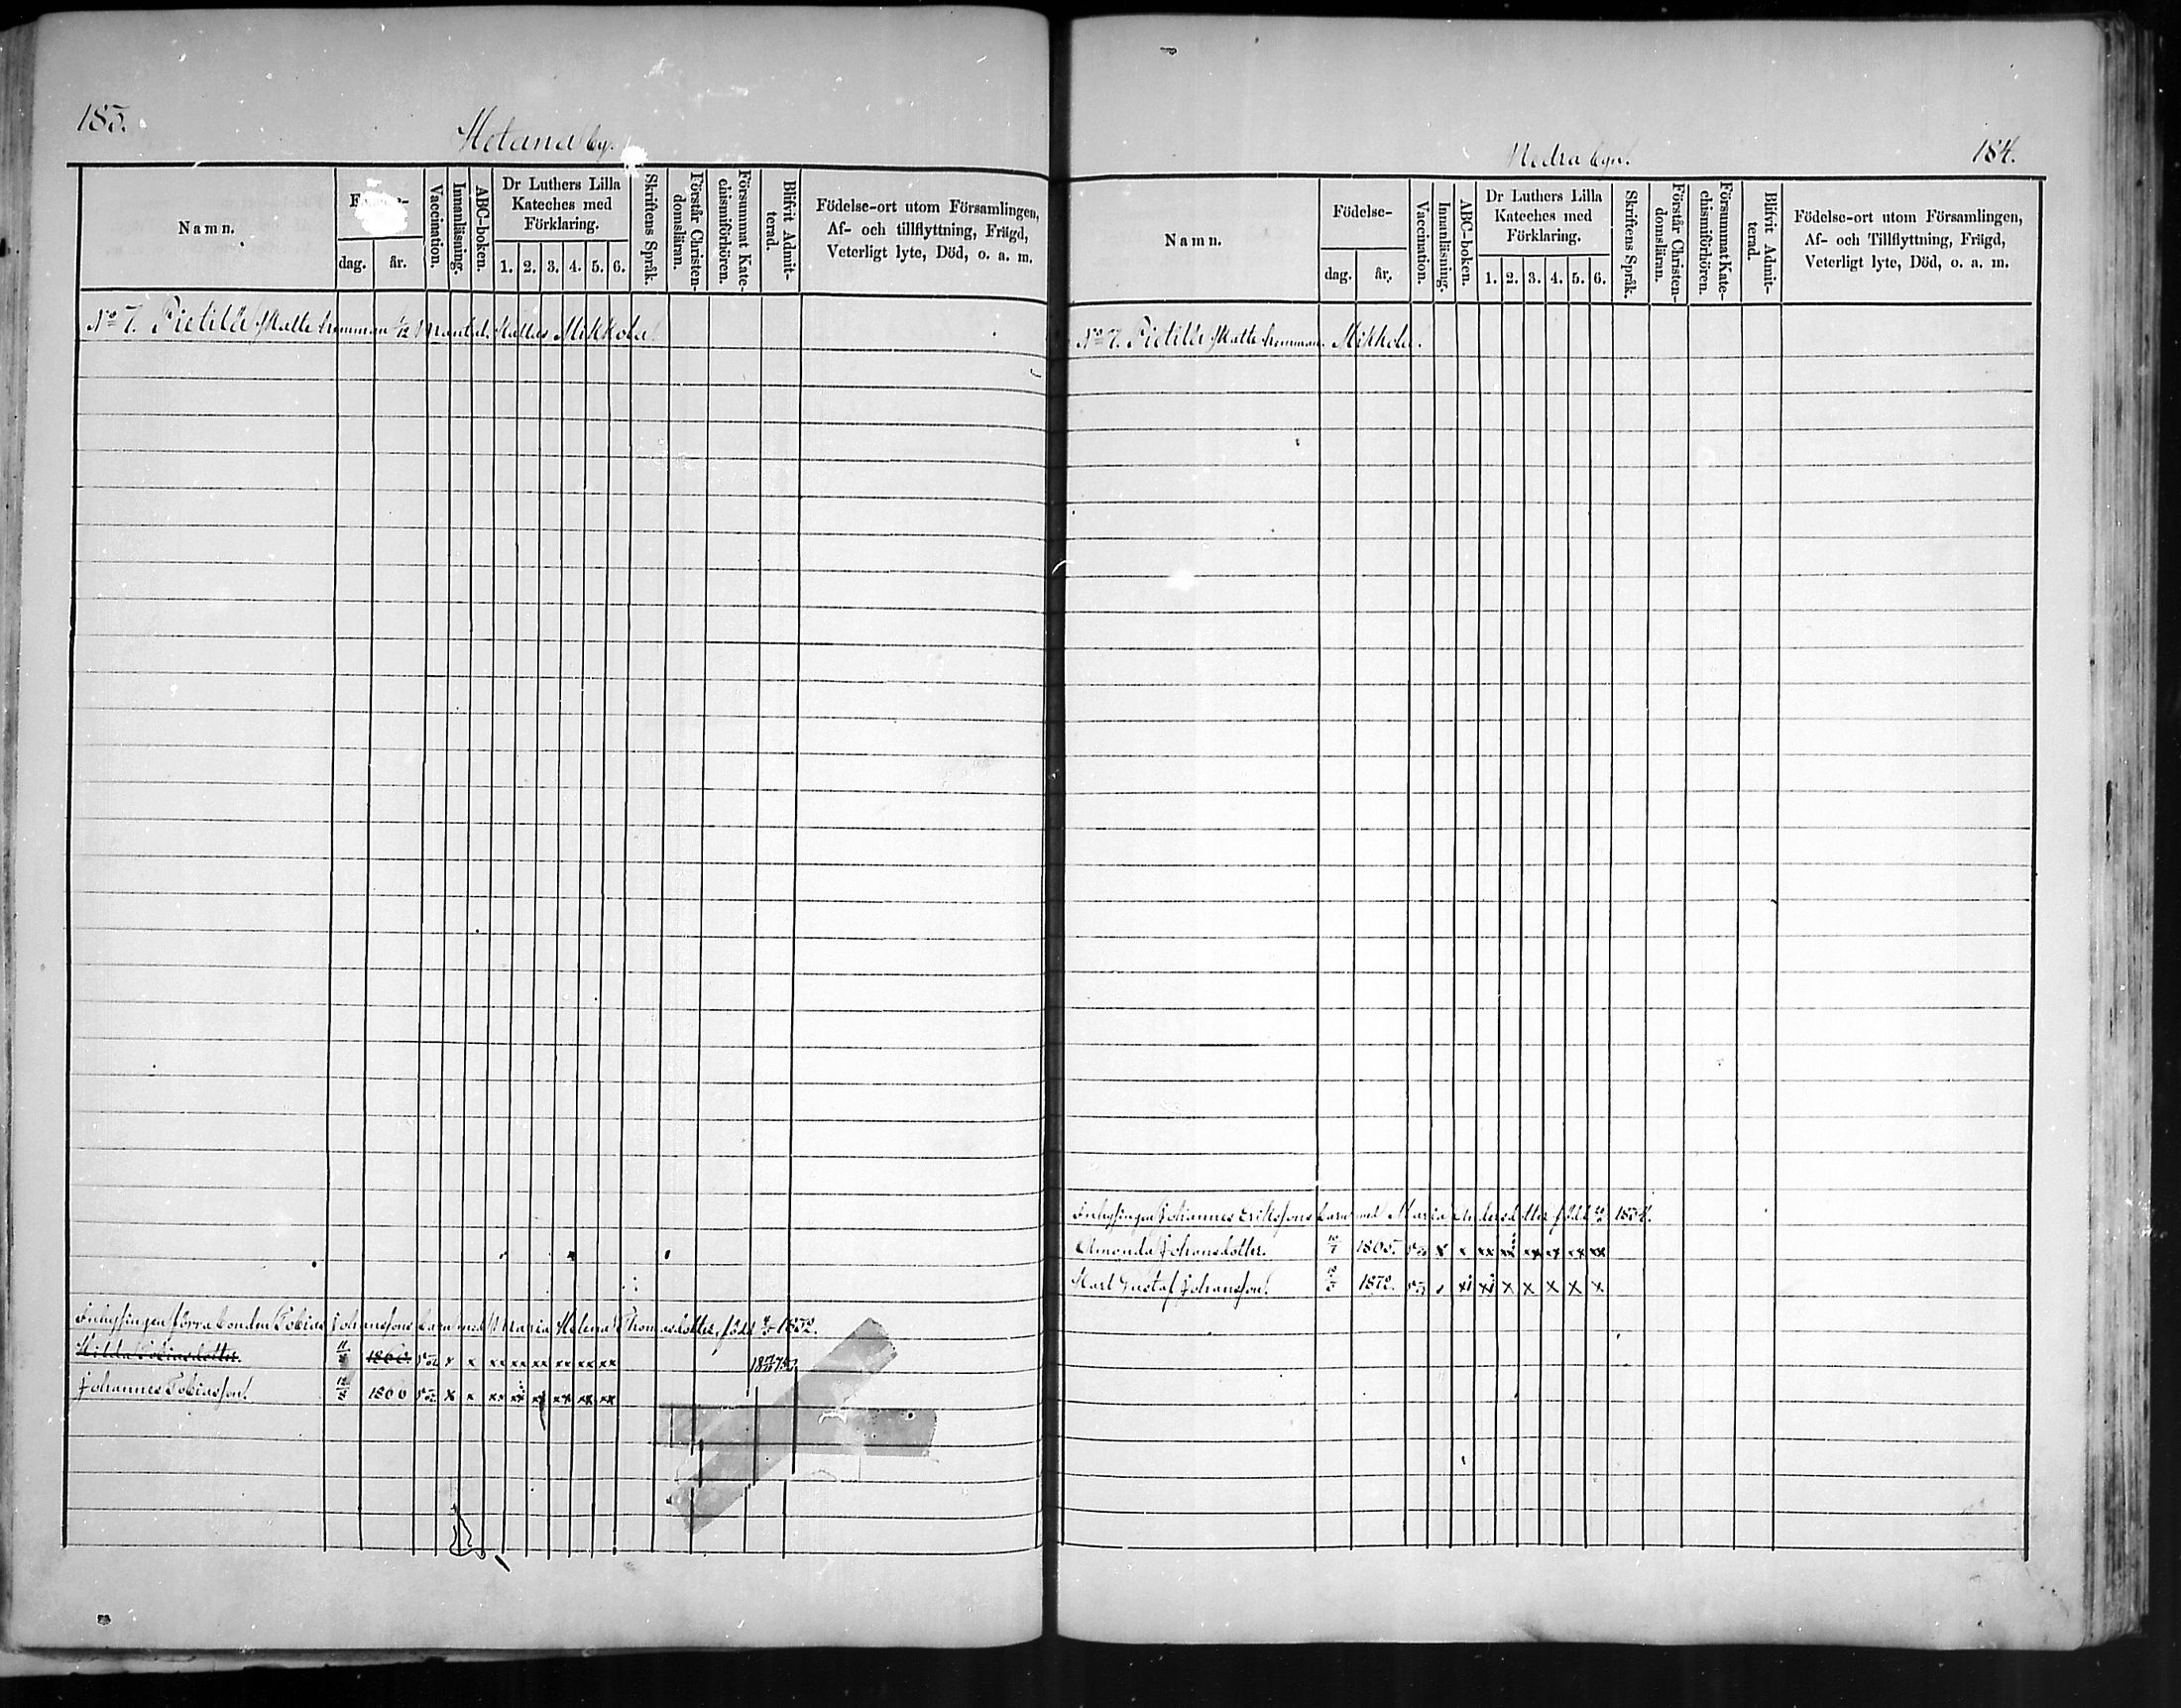 183.
Hotana by.
Namn.
dag. år.
Vaccination.
Innanläsning.
ABC-boken.
Dr Luthers Lilla Kateches med Förklaring.
1. 2. 3. 4. 5. 6.
Skriftens Språk.
Förstår Christen-domsläran.
Försummat Kate-chismiförhören.
Blifvit Admit-terad.
Födelse-ort utom Församlingen,
Af- och tillflyttning, Frägd,
Veterligt lyte, Död, o. a. m.
No 7. Pietilä Skatte hemman 1/12 Mantal. Kallas Mikkola.
Inhysingen förra bonden Tobias Johanssons barn med Maria Helena Thomasdotter, född 1832.
Hilda Tobiasdotter. 11/8 1860. x x xx xx xx xx xx xx
Johannes Tobiasson. 12/8 1866 x x xx xx xx xx xx xx
Nedra byn.
184.
Namn.
Födelse-
dag. år.
Vaccination.
Innanläsning.
ABC-boken.
Dr Luthers Lilla Kateches med Förklaring.
1. 2. 3. 4. 5. 6.
Skriftens Språk.
Förstår Christen-domsläran.
Försummat Kate-chismiförhören.
Blifvit Admit-terad.
Födelse-ort utom Församlingen,
Af- och Tillflyttning, Frägd,
Veterligt lyte, Död, o. a. m.
No 7. Pietilä Skatte hemman. Mikkola.
Inhysingen Johannes Erikssons barn med Maria Andersdotter född 1834.
Amanda Johansdotter. 1865. x x xx xx xx xx xx xx
Karl Gustaf Johansson. 1872. x x x x